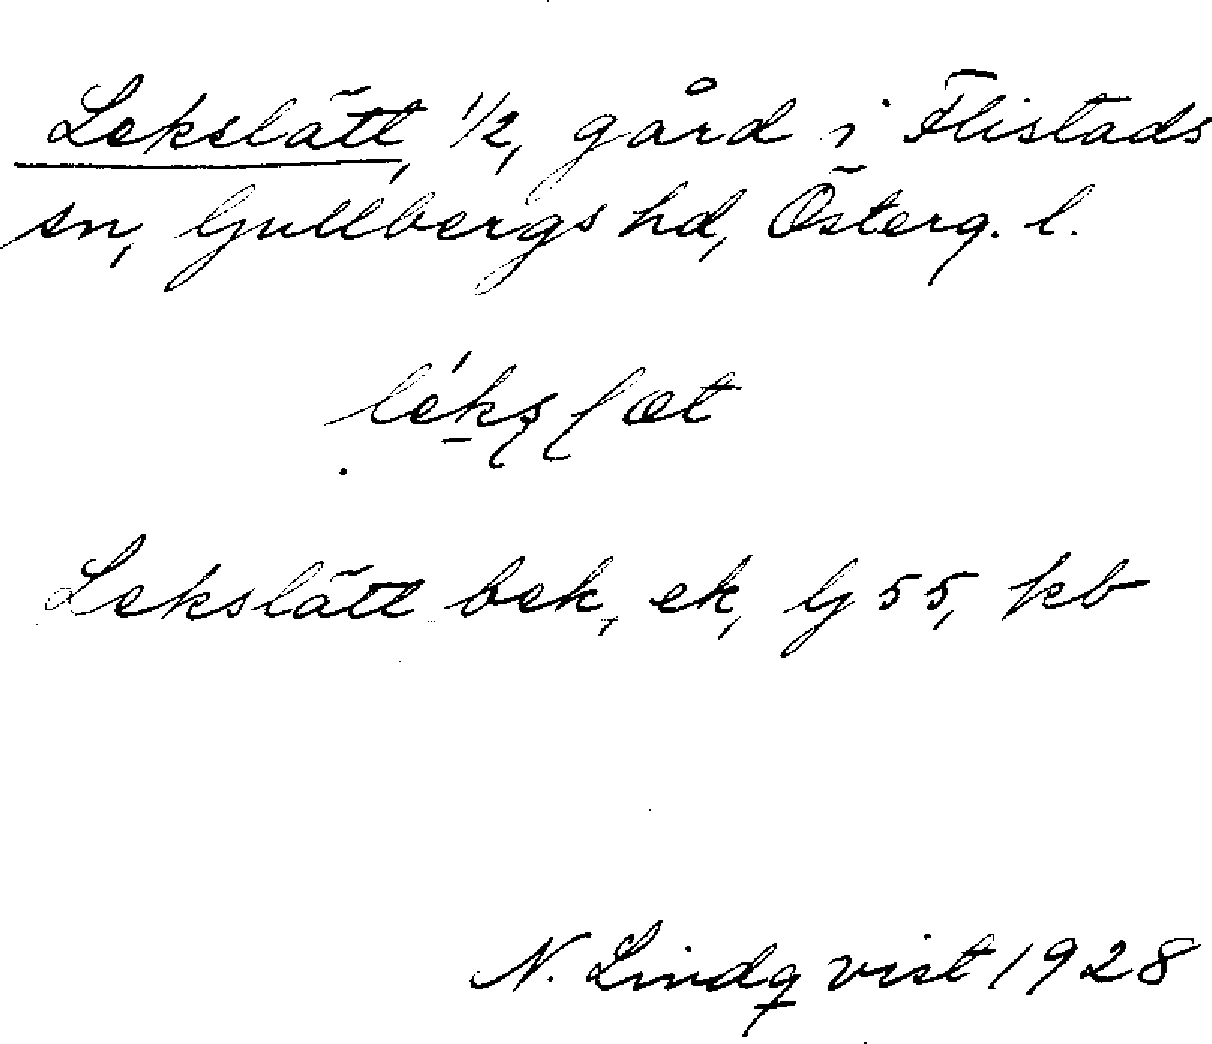 Lekslätt, 1/2, gård i Flistads
sn, Gullbergs hd, Österg. l.
Lekslätt bek, ek, G 55, kb
N. Lindqvist 1928